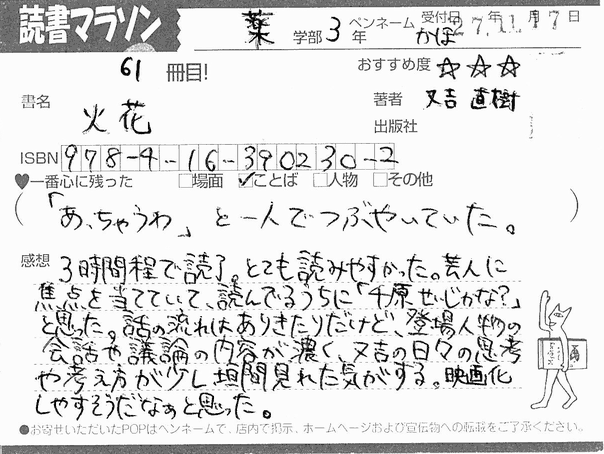 読書マラソン
薬 学部 3 年 ペンネーム かほ 受付日 27年 11月 17日
61 冊目! おすすめ度 ☆☆☆
書名 火花 著者 又吉 直樹
出版社
ISBN 978-4-16-390230-2
♥一番心に残った □場面 ☑ことば □人物 □その他
(「あ、ちゃうわ」と一人でつぶやいていた。)
感想 3時間程で読了。とても読みやすかった。芸人に
焦点を当てていて、読んでるうちに「千原せいじかな?」
と思った。話の流れはありきたりだけど、登場人物の
会話や議論の内容が濃く、又吉の日々の思考
や考え方が少し垣間見れた気がする。映画化
しやすそうだなぁと思った。
●お寄せいただいたPOPはペンネームで、店内で掲示、ホームページおよび宣伝物への転載をご了承ください。